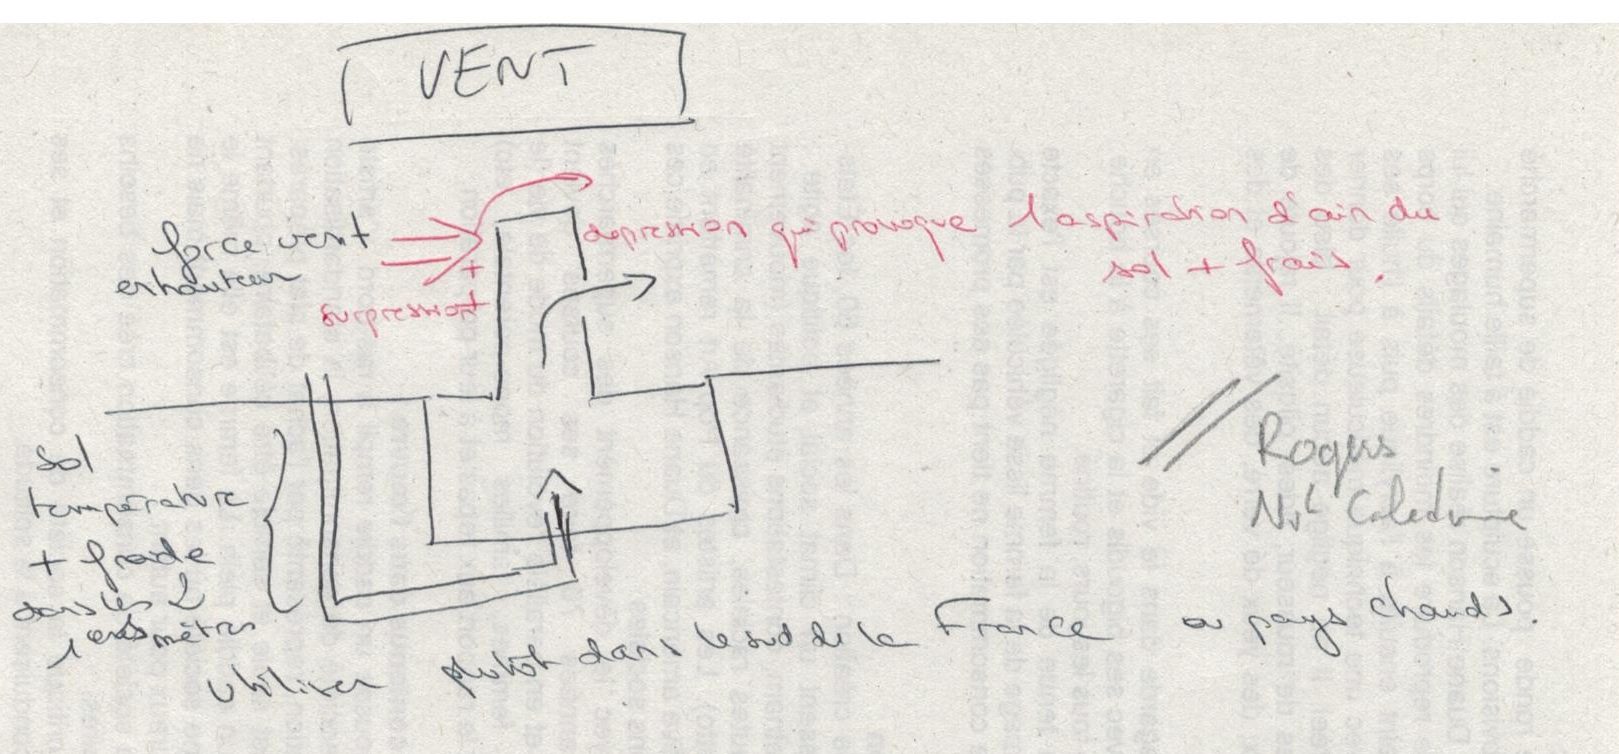 VENT
force vent
en hauteur
+
surpression
dépression qui provoque l'aspiration d'air du
sol + frais.
Sol
température
+ froide
dans les 2
1ers mètres
utiliser plutôt dans le sud de la France ou pays chauds.
// Rogers
Nvl Calédonie